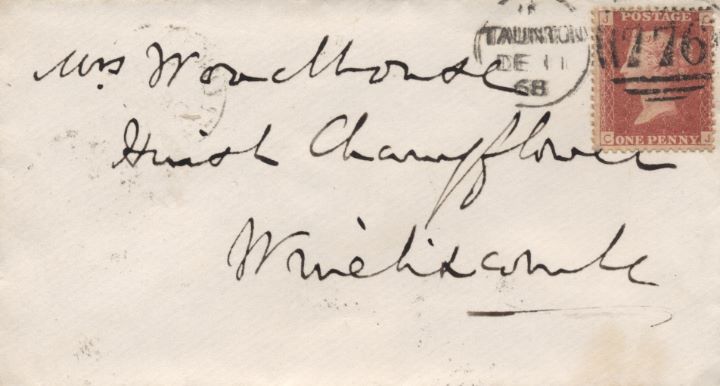 TAUNTON
DE 11
68
776
J C
POSTAGE
ONE PENNY
C J
Mrs Woodhouse
Huish Champflower
Wiveliscombe